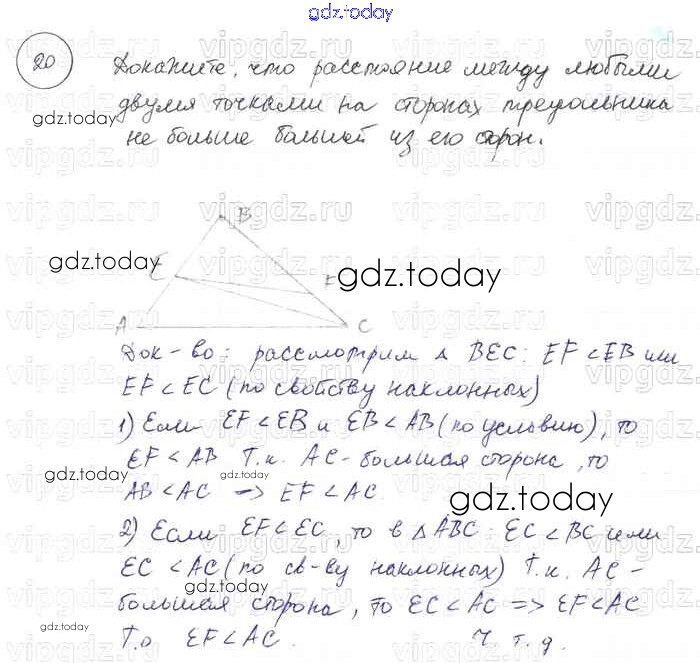 gdz.today
20
Докажите, что расстояние между любыми
двумя точками на сторонах треугольника
gdz.today
не больше большей из его сторон.
B
gdz.today
E
F
gdz.today
A
C
Док-во: рассмотрим △ BEC: EF < EB или
EF < EC (по свойству наклонных)
1) Если EF < EB и EB < AB (по условию), то
EF < AB Т.к. AC - большая сторона, то
gdz.today
AB < AC => EF < AC.
gdz.today
2) Если EF < EC, то в △ ABC: EC < BC или
EC < AC (по св-ву наклонных) Т.к. AC -
большая сторона, то EC < AC => EF < AC
gdz.today
Т.о EF < AC.
Ч.т.д.
gdz.today